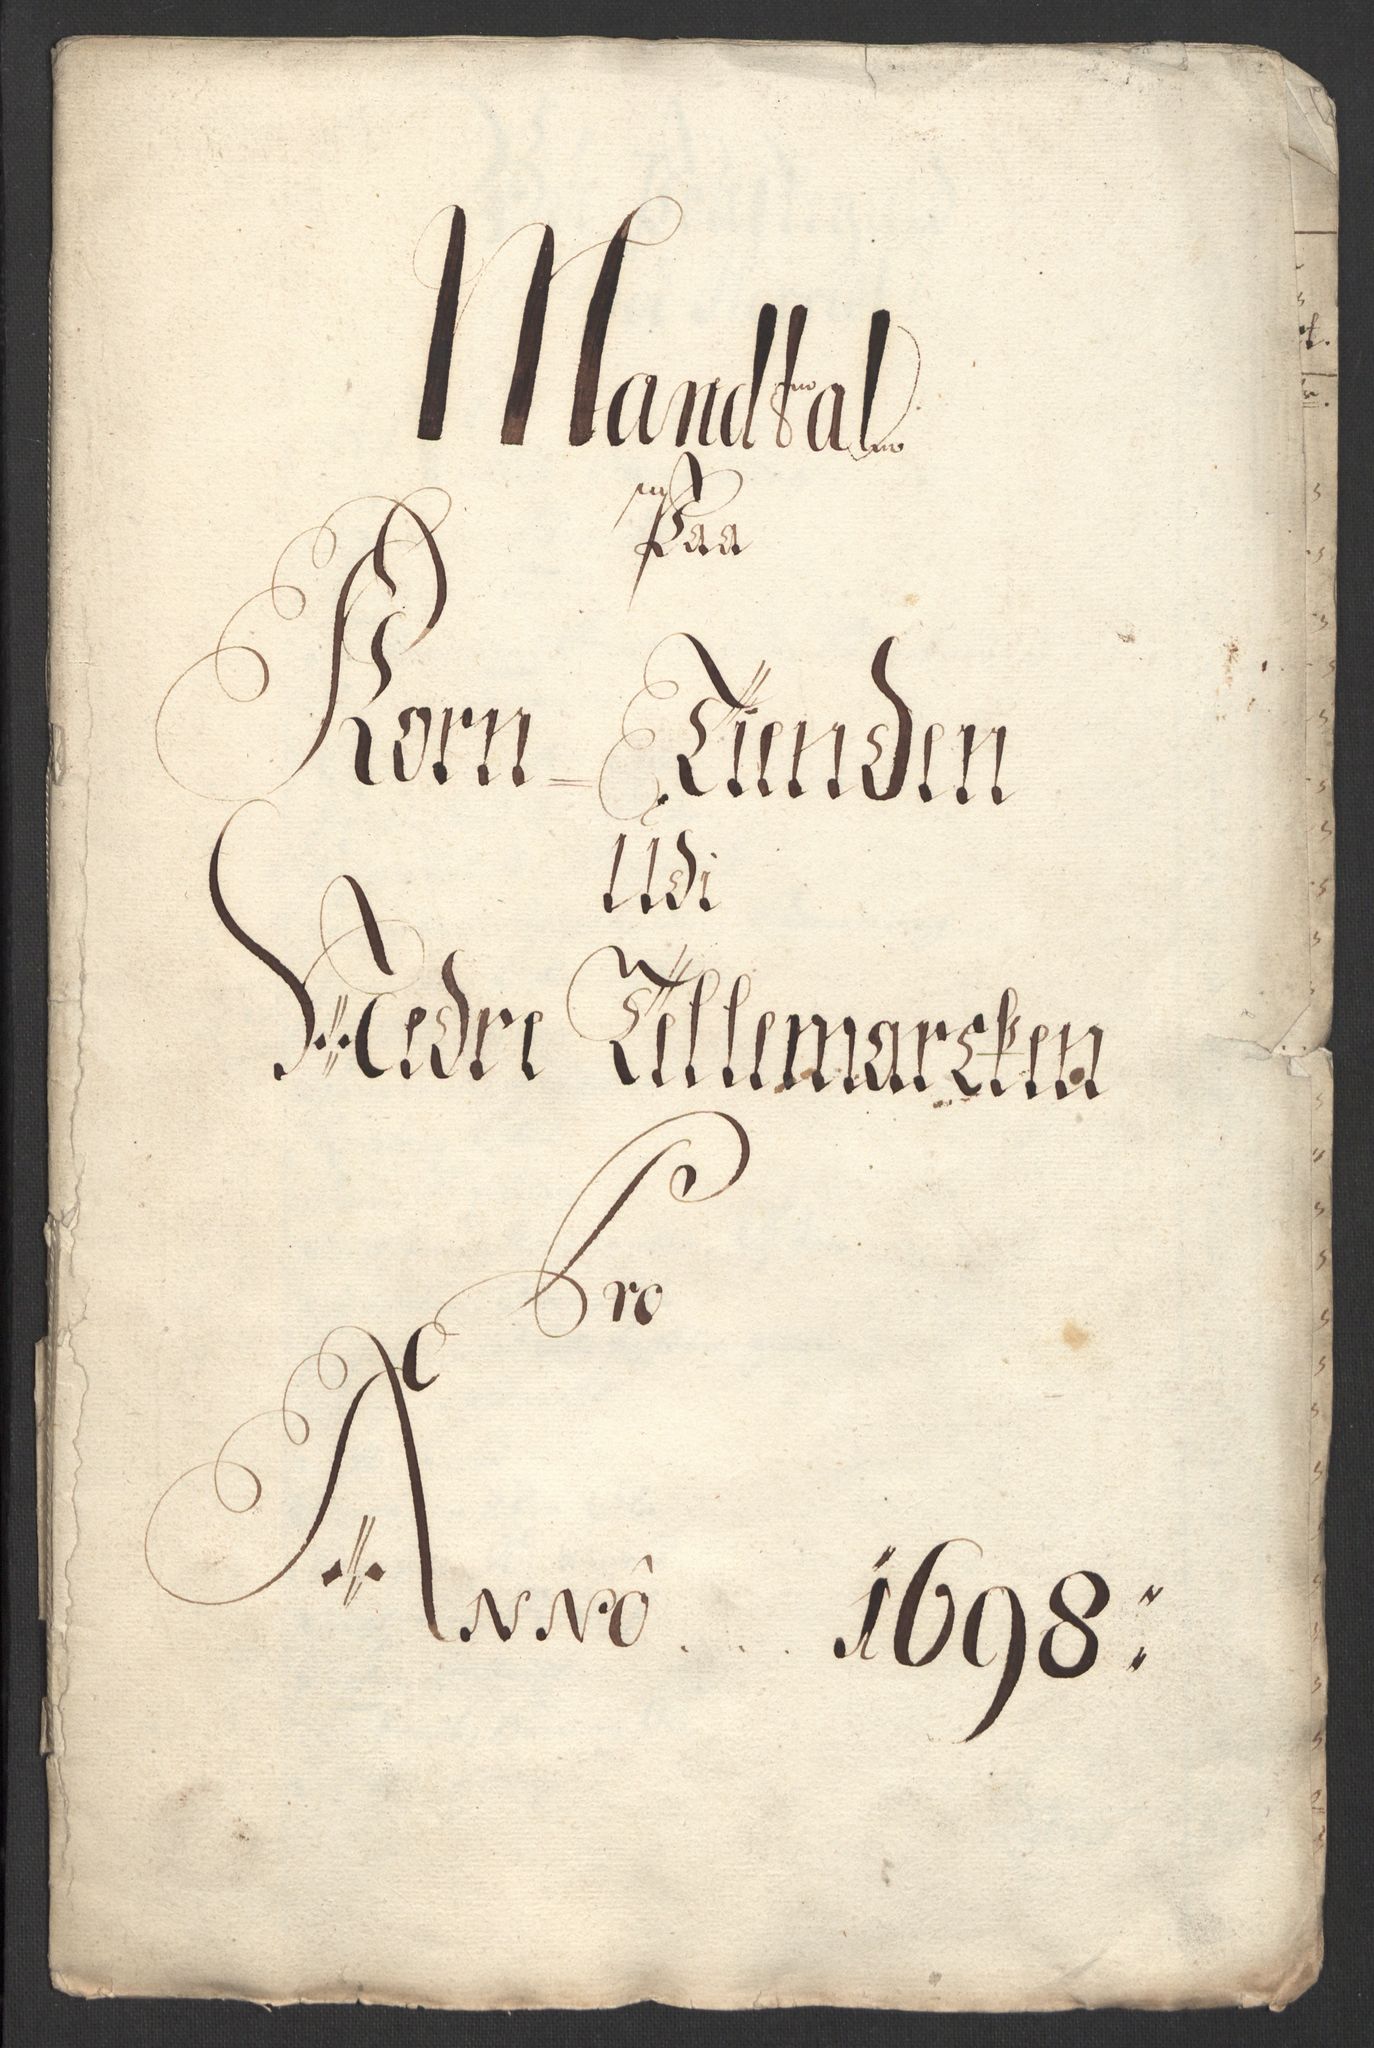 Mandtal
Paa
Korn-Tienden
udi
Nedre Tellemarcken
Pro
Anno 1698: